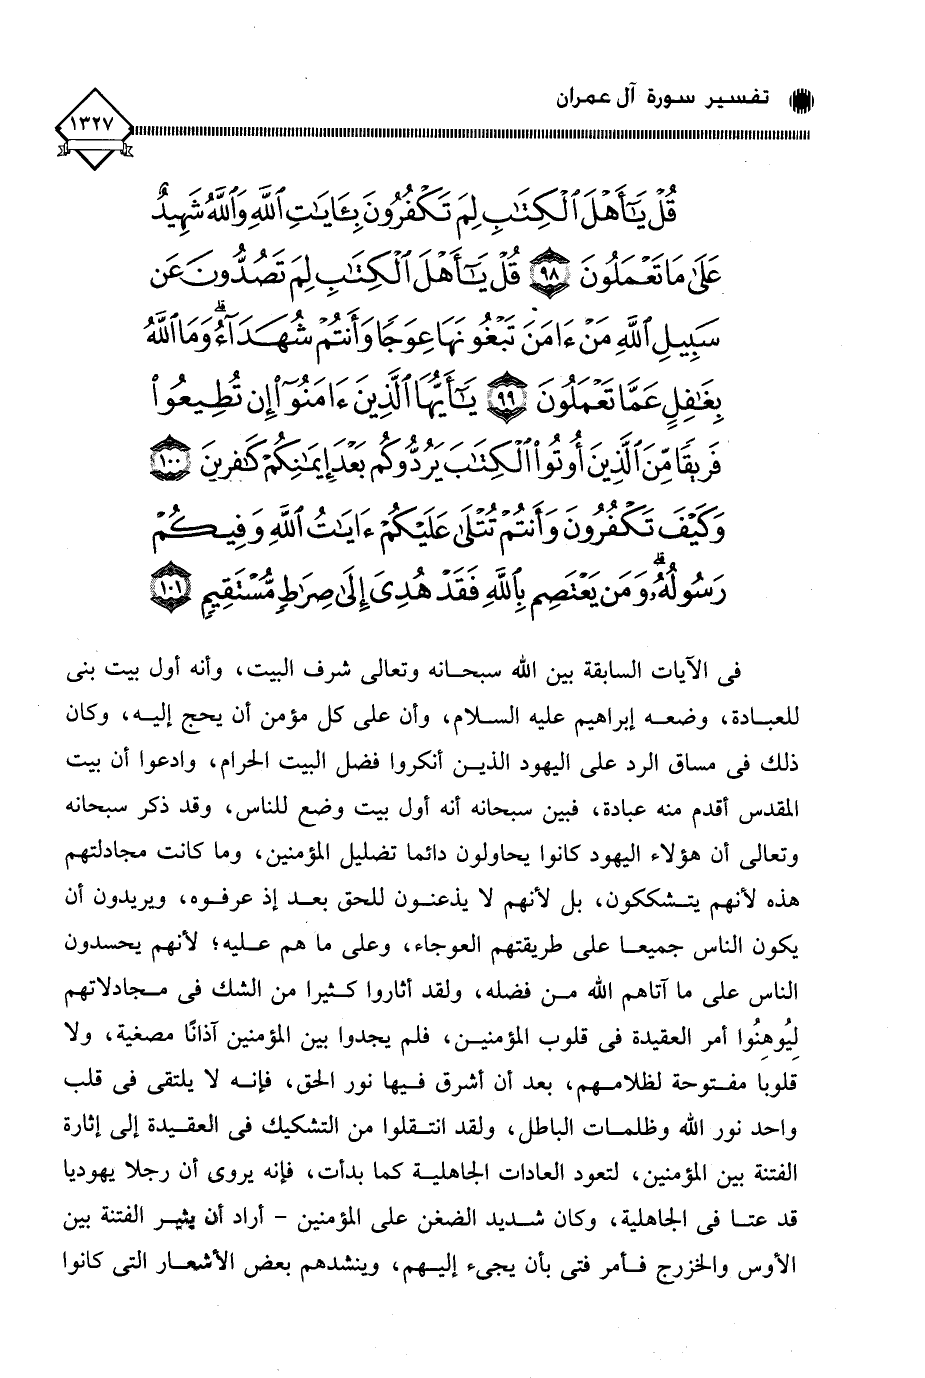 تفسير سورة آل عمران
١٣٢٧
قُلْ يَٰٓأَهْلَ ٱلْكِتَٰبِ لِمَ تَكْفُرُونَ بِـَٔايَٰتِ ٱللَّهِ وَٱللَّهُ شَهِيدٌ
عَلَىٰ مَا تَعْمَلُونَ ٩٨ قُلْ يَٰٓأَهْلَ ٱلْكِتَٰبِ لِمَ تَصُدُّونَ عَن
سَبِيلِ ٱللَّهِ مَنْ ءَامَنَ تَبْغُونَهَا عِوَجًا وَأَنتُمْ شُهَدَآءُ ۗ وَمَا ٱللَّهُ
بِغَٰفِلٍ عَمَّا تَعْمَلُونَ ٩٩ يَٰٓأَيُّهَا ٱلَّذِينَ ءَامَنُوٓا۟ إِن تُطِيعُوا۟
فَرِيقًا مِّنَ ٱلَّذِينَ أُوتُوا۟ ٱلْكِتَٰبَ يَرُدُّوكُم بَعْدَ إِيمَٰنِكُمْ كَٰفِرِينَ ١٠٠
وَكَيْفَ تَكْفُرُونَ وَأَنتُمْ تُتْلَىٰ عَلَيْكُمْ ءَايَٰتُ ٱللَّهِ وَفِيكُمْ
رَسُولُهُۥ ۗ وَمَن يَعْتَصِم بِٱللَّهِ فَقَدْ هُدِىَ إِلَىٰ صِرَٰطٍ مُّسْتَقِيمٍ ١٠١
فى الآيات السابقة بين الله سبحانه وتعالى شرف البيت، وأنه أول بيت بنى
للعبادة، وضعه إبراهيم عليه السلام، وأن على كل مؤمن أن يحج إليه، وكان
ذلك فى مساق الرد على اليهود الذين أنكروا فضل البيت الحرام، وادعوا أن بيت
المقدس أقدم منه عبادة، فبين سبحانه أنه أول بيت وضع للناس، وقد ذكر سبحانه
وتعالى أن هؤلاء اليهود كانوا يحاولون دائما تضليل المؤمنين، وما كانت مجادلتهم
هذه لأنهم يتشككون، بل لأنهم لا يذعنون للحق بعد إذ عرفوه، ويريدون أن
يكون الناس جميعا على طريقتهم العوجاء، وعلى ما هم عليه؛ لأنهم يحسدون
الناس على ما آتاهم الله من فضله، ولقد أثاروا كثيرا من الشك فى مجادلاتهم
لِيُوهِنُوا أمر العقيدة فى قلوب المؤمنين، فلم يجدوا بين المؤمنين آذانًا مصغية، ولا
قلوبا مفتوحة لظلامهم، بعد أن أشرق فيها نور الحق، فإنه لا يلتقى فى قلب
واحد نور الله وظلمات الباطل، ولقد انتقلوا من التشكيك فى العقيدة إلى إثارة
الفتنة بين المؤمنين، لتعود العادات الجاهلية كما بدأت، فإنه يروى أن رجلا يهوديا
قد عتا فى الجاهلية، وكان شديد الضغن على المؤمنين - أراد أن يثير الفتنة بين
الأوس والخزرج فأمر فتى بأن يجىء إليهم، وينشدهم بعض الأشعار التى كانوا